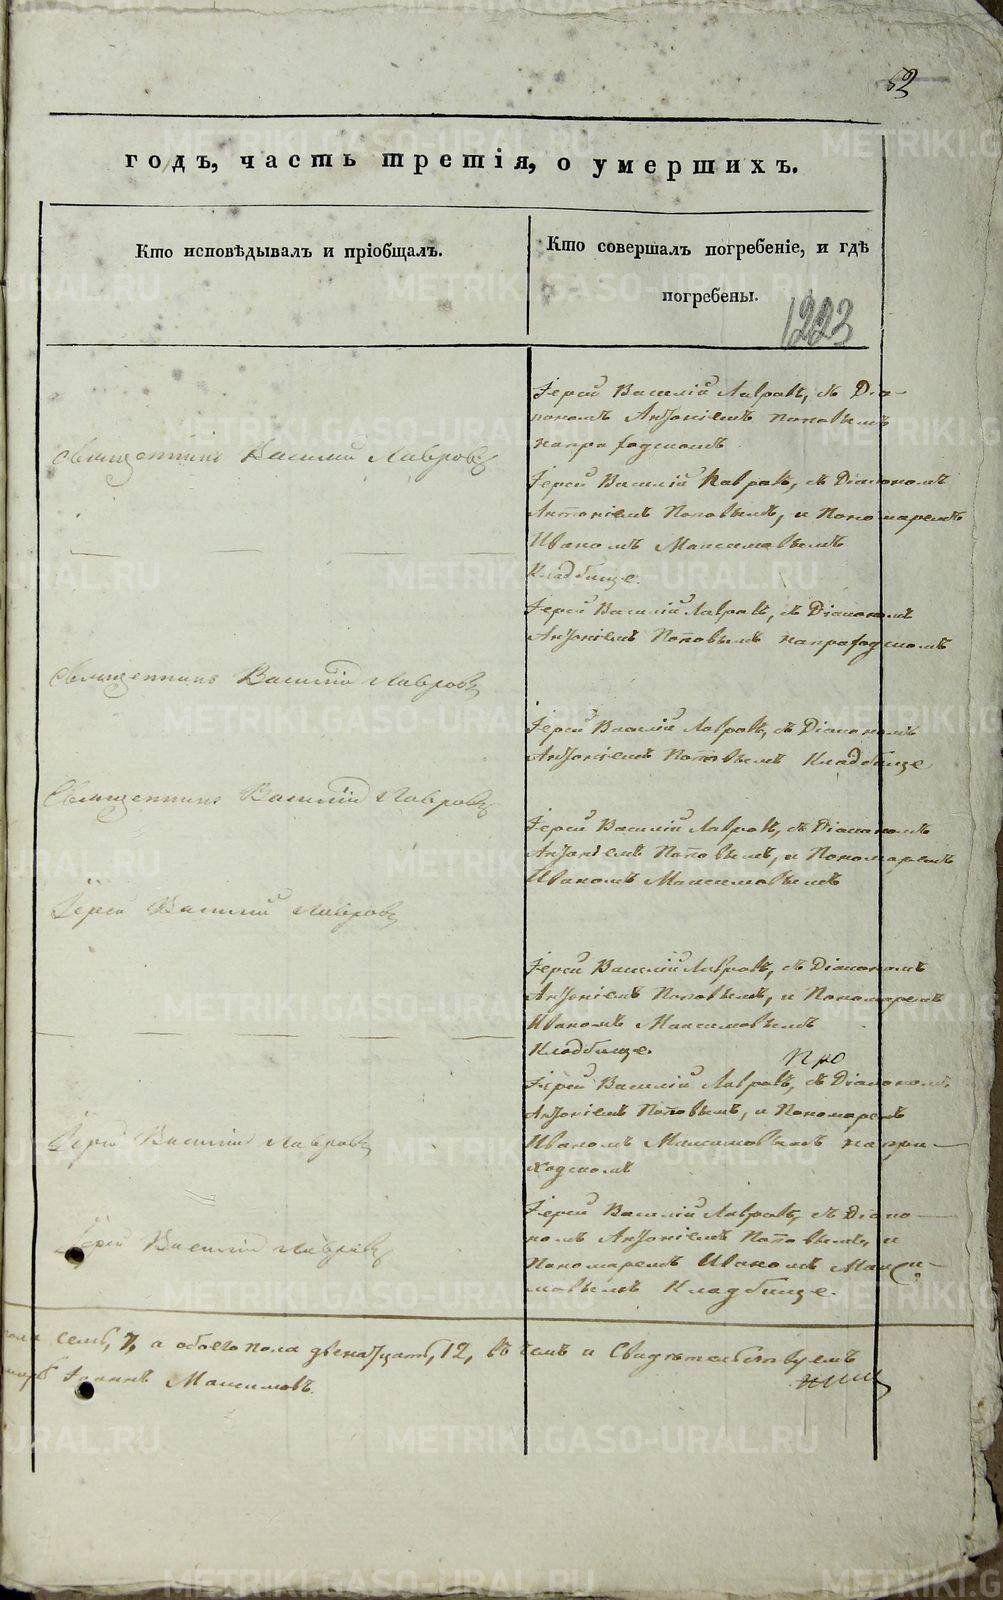 52
годъ, часть третія, о умершихъ.
Кто исповѣдывалъ и пріобщалъ.
Кто совершалъ погребеніе, и гдѣ
погребены.
1223
Іерей Василій Лавровъ, съ Діа-
кономъ Антоніемъ Поповымъ
Священникъ Василий Лавровъ
Іерей Василій Лавровъ, съ Діакономъ
Антоніемъ Поповымъ, и Пономаремъ
Иваномъ Максимовымъ
Кладбище.
Іерей Василій Лавровъ, съ Діакономъ
Антоніемъ Поповымъ
Священникъ Василий Лавровъ
Іерей Василій Лавровъ, съ Діакономъ
Антоніемъ Поповымъ Кладбище
Священникъ Василий Лавровъ
Іерей Василій Лавровъ, съ Діакономъ
Антоніемъ Поповымъ, и Пономаремъ
Иваномъ Максимовымъ
Іерей Василий Лавровъ
Іерей Василій Лавровъ, съ Діакономъ
Антоніемъ Поповымъ, и Пономаремъ
Иваномъ Максимовымъ
Кладбище.
Іерей Василій Лавровъ, съ Діакономъ
Антоніемъ Поповымъ, и Пономаремъ
Іерей Василий Лавровъ
Иваномъ Максимовымъ на при-
ходскомъ
Іерей Василій Лавровъ, съ Діако-
номъ Антоніемъ Поповымъ, и
Іерей Василий Лавровъ
Пономаремъ Иваномъ Макси-
мовымъ Кладбище.
пола семь, 7, а обоего пола двенатцать, 12, въ чемъ и Свидѣтельствуемъ
Іоаннъ Максимовъ.
METRIKI.GASO-URAL.RU